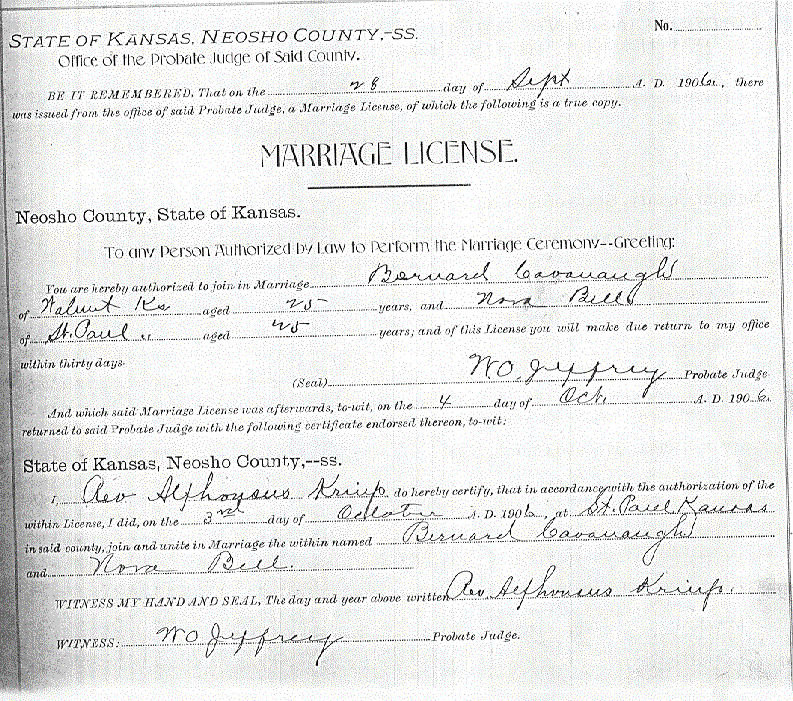 No.
STATE OF KANSAS, NEOSHO COUNTY,-SS.
Office of the Probate Judge of Said County.
BE IT REMEMBERED, That on the 28 day of Sept A. D. 1906, there
was issued from the office of said Probate Judge, a Marriage License, of which the following is a true copy.
MARRIAGE LICENSE.
Neosho County, State of Kansas.
To any Person Authorized by Law to Perform the Marriage Ceremony--Greeting:
You are hereby authorized to join in Marriage Bernard Cavanaugh
of Walnut Ks aged 25 years, and Nora Bell
of St. Paul " aged 25 years; and of this License you will make due return to my office
within thirty days.
(Seal) W O Jeffrey Probate Judge
And which said Marriage License was afterwards, to-wit, on the 4 day of Oct. A. D. 1906.
returned to said Probate Judge with the following certificate endorsed thereon, to-wit:
State of Kansas, Neosho County,--ss.
I, Rev Alphonsus do hereby certify, that in accordance with the authorization of the
within License, I did, on the 3rd day of October A. D. 1906, at St. Paul Kansas
in said county, join and unite in Marriage the within named Bernard Cavanaugh
and Nora Bell.
WITNESS MY HAND AND SEAL, The day and year above written Rev. Alphonsus
WITNESS: W O Jeffrey Probate Judge.